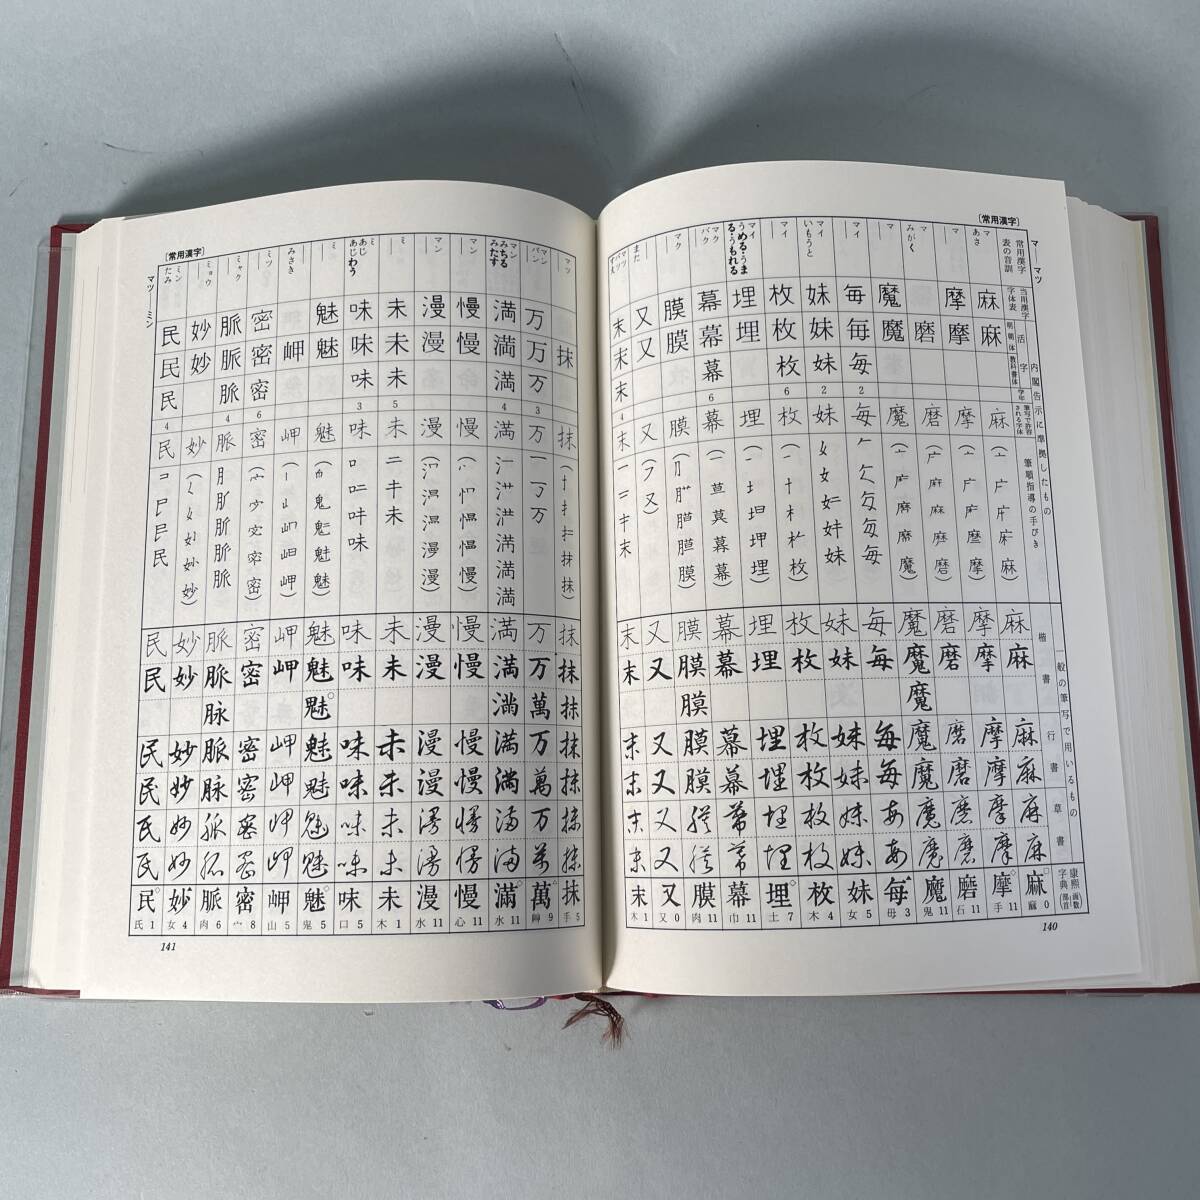 〔常用漢字〕
マ―マツ
内閣告示に準拠したもの
一般の筆写で用いるもの
常用漢字表の音訓 当用漢字字体表 活字 明朝体 教科書体 学年 筆写で許容される字体 筆順指導の手びき 楷書 行書 草書 康煕字典 (画数 部首)
マ あさ 麻 麻 麻 麻 麻 麻 麻 麻 麻 麻 麻 麻 0
マ 摩 摩 摩 摩 摩 摩 摩 摩 摩 摩 摩 手 11
マ みがく 磨 磨 磨 磨 磨 磨 磨 磨 磨 磨 石 11
マ 魔 魔 魔 魔 魔 魔 魔 魔 魔 魔 魔 魔 鬼 11
マイ 毎 毎 毎 2 毎 毎 毎 毎 毎 毎 毎 毎 每 毋 3
マイ いもうと 妹 妹 妹 2 妹 妹 妹 妹 妹 妹 妹 妹 妹 女 5
マイ 枚 枚 枚 6 枚 枚 枚 枚 枚 枚 枚 枚 枚 木 4
マイ うめる・うまる・うもれる 埋 埋 埋 埋 埋 埋 埋 埋 埋 埋 埋 土 7
マク バク 幕 幕 幕 6 幕 幕 幕 幕 幕 幕 幕 幕 幕 巾 11
マク 膜 膜 膜 膜 膜 膜 膜 膜 膜 膜 膜 膜 肉 11
また 又 又 又 又 又 又 又 又 又 又 又 又 0
マツ バツ すえ 末 末 末 4 末 末 末 末 末 末 末 末 末 木 1
140
〔常用漢字〕
マツ―ミン
マツ 抹 抹 抹 抹 抹 抹 抹 抹 抹 抹 抹 手 5
マン バン 万 万 万 3 万 万 万 万 萬 万 萬 万 萬 萬 艸 9
マン みちる みたす 満 満 満 4 満 満 満 満 満 満 満 満 満 滿 水 11
マン 慢 慢 慢 慢 慢 慢 慢 慢 慢 慢 慢 心 11
マン 漫 漫 漫 漫 漫 漫 漫 漫 漫 漫 漫 水 11
ミ 未 未 未 5 未 未 未 未 未 未 未 未 未 木 1
ミ あじ あじわう 味 味 味 3 味 味 味 味 味 味 味 味 味 口 5
ミ 魅 魅 魅 魅 魅 魅 魅 魅 魅 魅 魅 魅 鬼 5
みさき 岬 岬 岬 岬 岬 岬 岬 岬 岬 岬 山 5
ミツ 密 密 密 6 密 密 密 密 密 密 密 密 密 宀 8
ミャク 脈 脈 脈 4 脈 脈 脈 脈 脉 脈 脉 脈 脈 脈 肉 6
ミョウ 妙 妙 妙 妙 妙 妙 妙 妙 妙 妙 妙 女 4
ミン たみ 民 民 民 4 民 民 民 民 民 民 民 民 民 氏 1
141